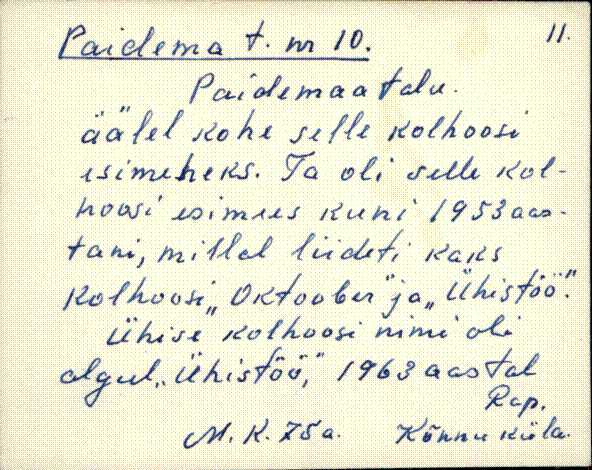 Paidema t. nr 10.
11.
Paidemaa talu.
äälel kohe selle kolhoosi
esimeheks. Ta oli selle kol-
hoosi esimees kuni 1953 aas-
tani, millal liideti kaks
kolhoosi „Oktoober" ja „Ühistöö".
Ühise kolhoosi nimi oli
algul „Ühistöö," 1963 aastal
Rap.
M. K. 75a. Kõnnu küla.